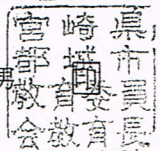 宮崎県
都城市
男
印
教育委員
会教育長